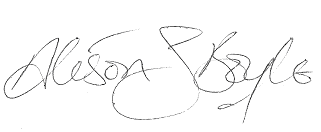 Alison J Boyle